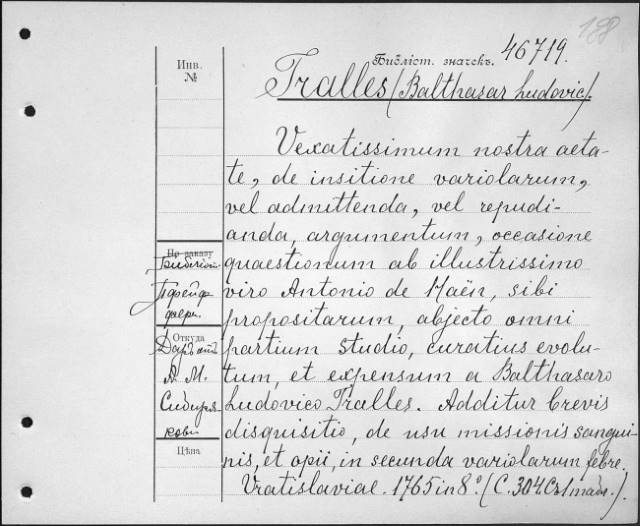 188
46719.
Инв.
№
Библіот. значекъ.
Tralles (Balthasar Ludovic).
Vexatissimum nostra aeta-
te, de insitione variolarum,
vel admittenda, vel repudi-
anda, argumentum, occasione
quaestionum ab illustrissimo
viro Antonio de Haën, sibi
propositarum, abjecto omni
partium studio, curatius evolu-
tum, et expensum a Balthasaro
Ludovico Tralles. Additur brevis
disquisitio, de usu missionis sangui-
nis, et opii, in secunda variolarum febre.
Vratislaviae. 1765 in 8º. (C. 304
По заказу
Откуда
Даръ
А. М.
Сибиря-
кова
Цѣна